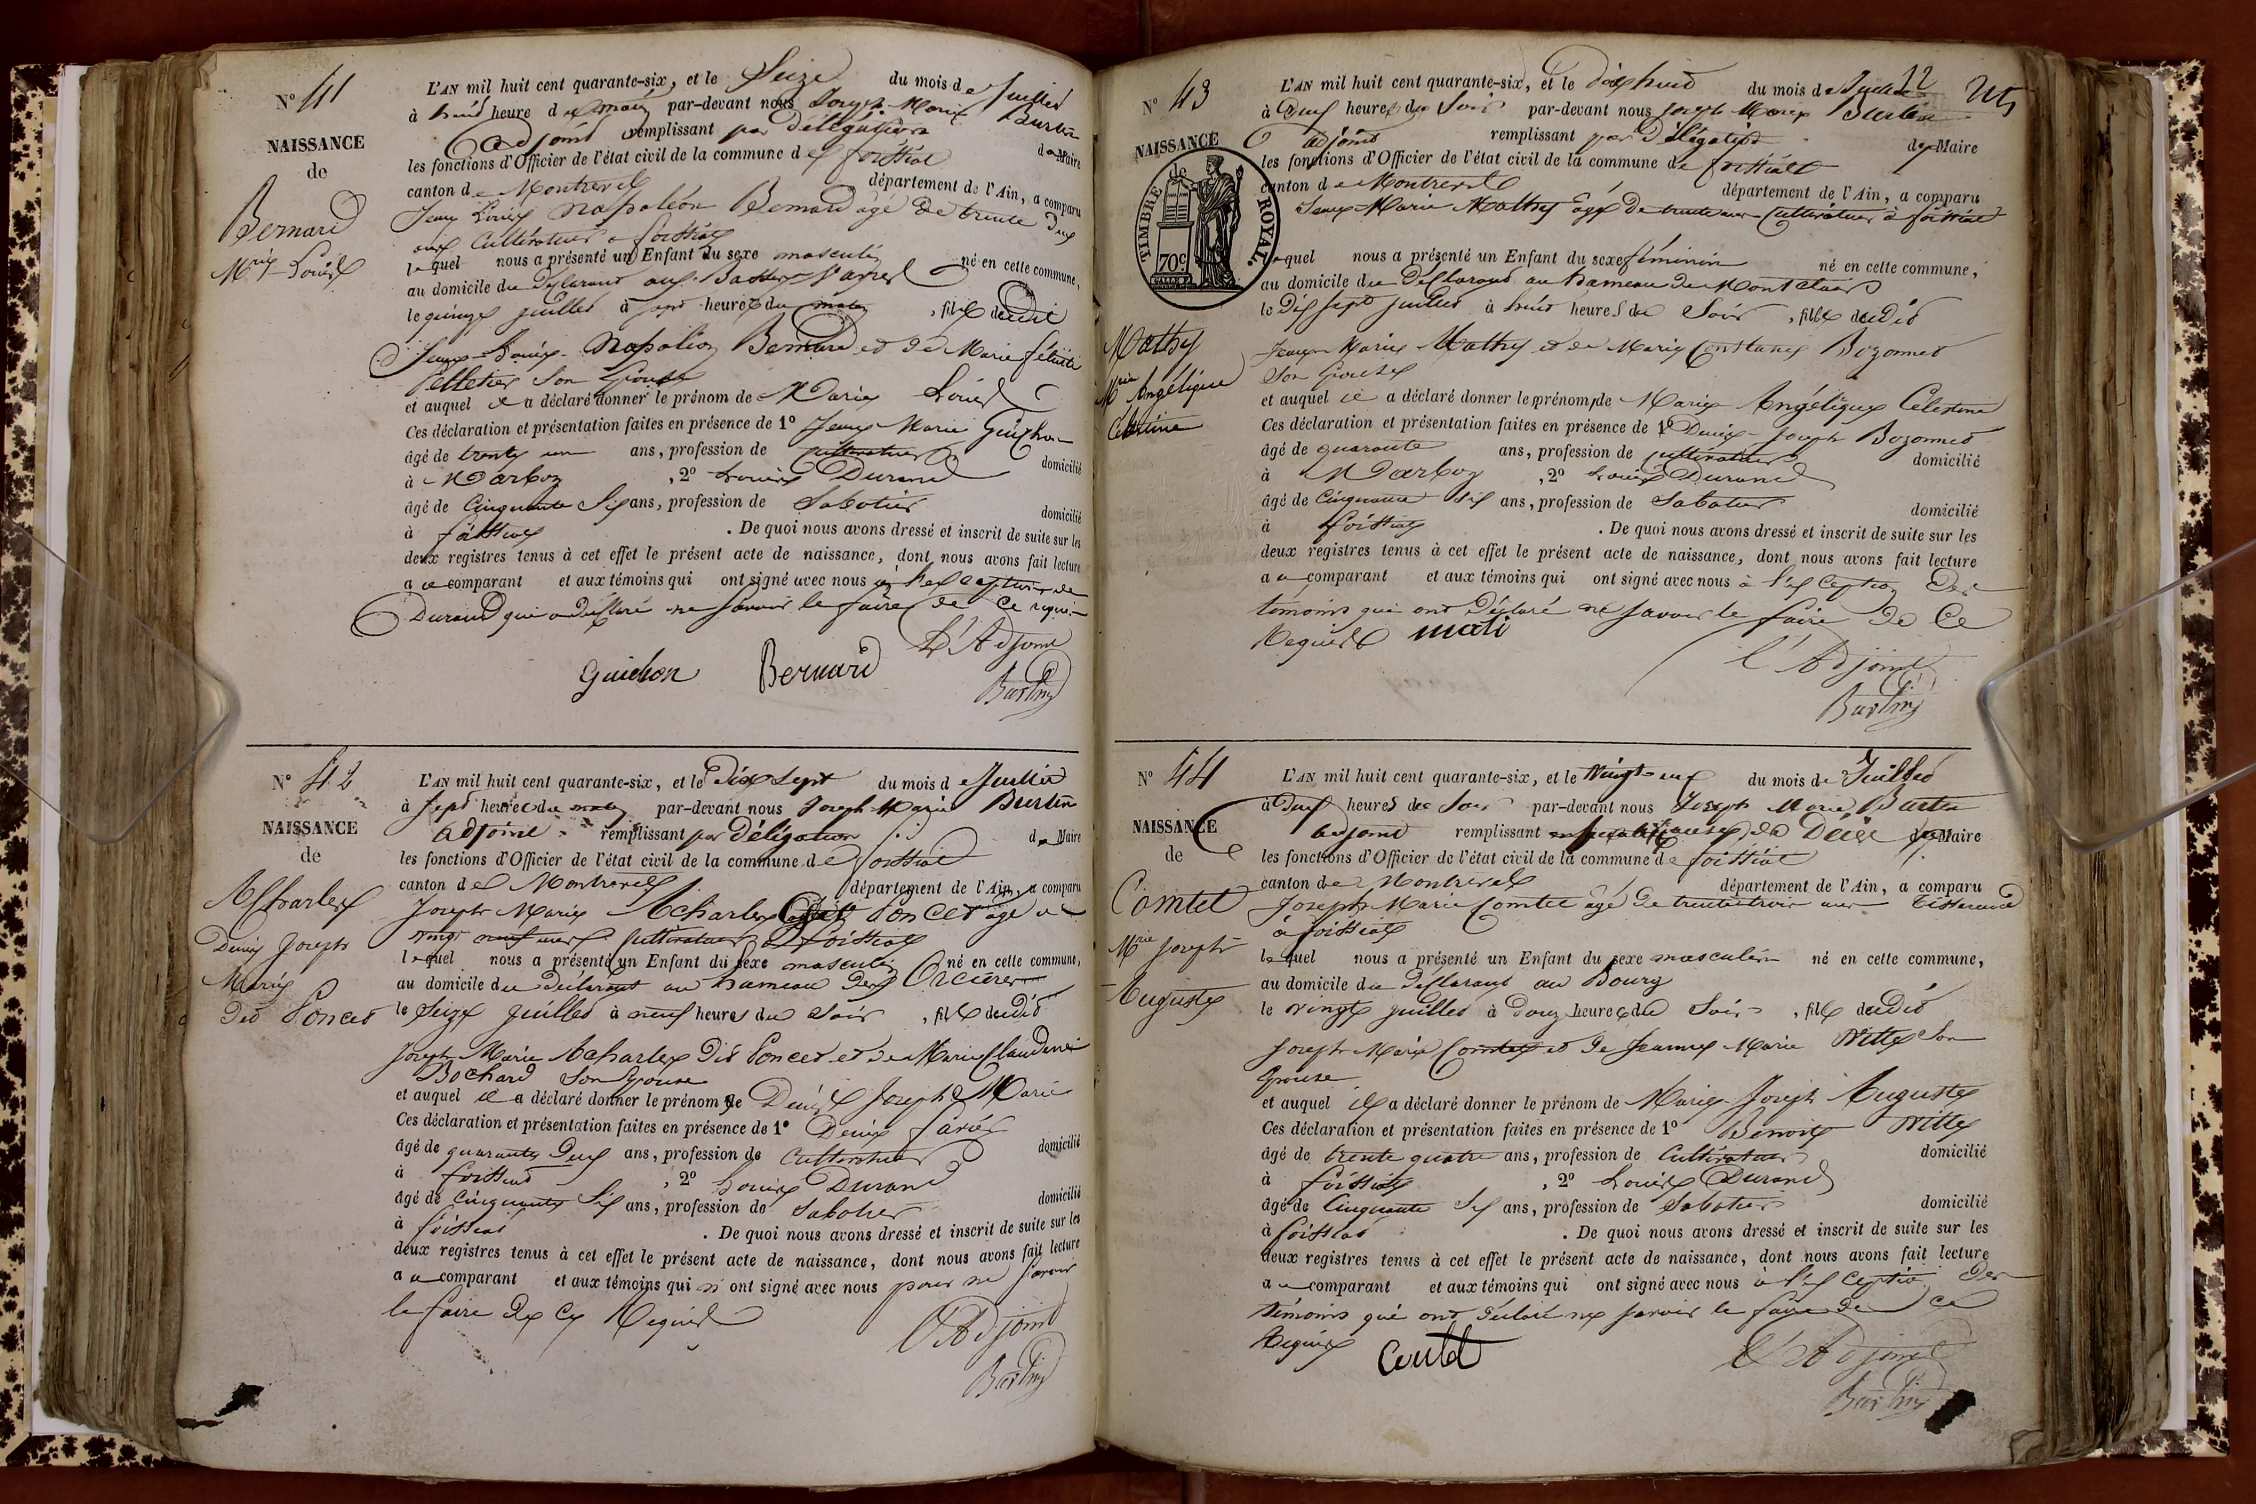 N° 41
NAISSANCE
de
Bernard
Mie Louis
L'AN mil huit cent quarante-six, et le Seize du mois de Juillet
à huit heure du matin par-devant nous Joseph Marie Burtin
Adjoint remplissant par Délégation de Maire
les fonctions d'Officier de l'état civil de la commune de foissiat
canton de Montrevel département de l'Ain, a comparu
Jean Louis Napoléon Bernard âgé de trente deux
ans Cultivateur à foissiat
lequel nous a présenté un Enfant du sexe masculin né en cette commune,
au domicile du Déclarant aux
le quinze juillet à sept heures du matin, fils du dit
Jean Louis Napoléon Bernard et de Marie félicité
Pelletier son épouse
et auquel il a déclaré donner le prénom de Marie Louis
Ces déclaration et présentation faites en présence de 1° Jean Marie Guichon
âgé de trente un ans, profession de cultivateur domicilié
à Marboz, 2° Louis Durand
âgé de Cinquante Six ans, profession de Sabotier domicilié
à foissiat. De quoi nous avons dressé et inscrit de suite sur les
deux registres tenus à cet effet le présent acte de naissance, dont nous avons fait lecture
au comparant et aux témoins qui ont signé avec nous à l'exception de
Durand qui a déclaré ne savoir le faire de ce requis
L'Adjoint
Guichon Bernard Burtin
N° 42
NAISSANCE
de
Acharles
Denis Joseph
Marie
dit Poncet
L'AN mil huit cent quarante-six, et le Dix Sept du mois de Juillet
à sept heures du matin par-devant nous Joseph Marie Burtin
Adjoint remplissant par Délégation de Maire
les fonctions d'Officier de l'état civil de la commune de foissiat
canton de Montrevel département de l'Ain, a comparu
Joseph Marie Acharles dit Poncet âgé de
vingt neuf ans cultivateur à foissiat
lequel nous a présenté un Enfant du sexe masculin né en cette commune,
au domicile du Déclarant au hameau des Orcières
le Seize juillet à neuf heures du Soir, fils du dit
Joseph Marie Acharles Dit Poncet et de Marie Claudine
Bochard Son épouse
et auquel il a déclaré donner le prénom de Denis Joseph Marie
Ces déclaration et présentation faites en présence de 1° Denis
âgé de quarante Deux ans, profession de Cultivateur domicilié
à foissiat, 2° Louis Durand
âgé de Cinquante Six ans, profession de Sabotier domicilié
à foissiat. De quoi nous avons dressé et inscrit de suite sur les
deux registres tenus à cet effet le présent acte de naissance, dont nous avons fait lecture
au comparant et aux témoins qui n'ont signé avec nous pour ne savoir
le faire de ce Requis
L'Adjoint
Burtin
N° 43
NAISSANCE
de
TIMBRE ROYAL.
70 c
Mathy
Mie Angélique
Célestine
12
L'AN mil huit cent quarante-six, et le dix huit du mois de Juillet
à Deux heures du Soir par-devant nous Joseph Marie Burtin
Adjoint remplissant par Délégation de Maire
les fonctions d'Officier de l'état civil de la commune de foissiat
canton de Montrevel département de l'Ain, a comparu
Jean Marie Mathy âgé de trente ans Cultivateur à foissiat
lequel nous a présenté un Enfant du sexe féminin né en cette commune,
au domicile du Déclarant au hameau de Montclair
le Dix sept juillet à huit heures du Soir, fille du Dit
Jean Marie Mathy et de Marie Constance Bozonnet
Son épouse
et auquel il a déclaré donner le prénom de Marie Angélique Célestine
Ces déclaration et présentation faites en présence de 1° Denis Joseph Bozonnet
âgé de quarante ans, profession de cultivateur domicilié
à Marboz, 2° Louis Durand
âgé de Cinquante Six ans, profession de Sabotier domicilié
à foissiat. De quoi nous avons dressé et inscrit de suite sur les
deux registres tenus à cet effet le présent acte de naissance, dont nous avons fait lecture
au comparant et aux témoins qui ont signé avec nous à l'exception des
témoins qui ont Déclaré ne savoir le faire de ce
Requis mati
L'Adjoint
Burtin
N° 44
NAISSANCE
de
Comtet
Mie Joseph
Auguste
L'AN mil huit cent quarante-six, et le vingt un du mois de Juillet
à Deux heures du Soir par-devant nous Joseph Marie Burtin
Adjoint remplissant de Maire
les fonctions d'Officier de l'état civil de la commune de foissiat
canton de Montrevel département de l'Ain, a comparu
Joseph Marie Comtet âgé de trente trois ans Tisserand
à foissiat
lequel nous a présenté un Enfant du sexe masculin né en cette commune,
au domicile du Déclarant au Bourg
le vingt juillet à Douze heures du Soir, fils du Dit
Joseph Marie Comtet et de Jeanne Marie Vitte Son
épouse
et auquel il a déclaré donner le prénom de Marie Joseph Auguste
Ces déclaration et présentation faites en présence de 1° Benoit Vitte
âgé de trente quatre ans, profession de Cultivateur domicilié
à foissiat, 2° Louis Durand
âgé de Cinquante Six ans, profession de Sabotier domicilié
à foissiat. De quoi nous avons dressé et inscrit de suite sur les
deux registres tenus à cet effet le présent acte de naissance, dont nous avons fait lecture
au comparant et aux témoins qui ont signé avec nous à l'exception des
témoins qui ont déclaré ne savoir le faire de ce
Requis
L'Adjoint
Burtin